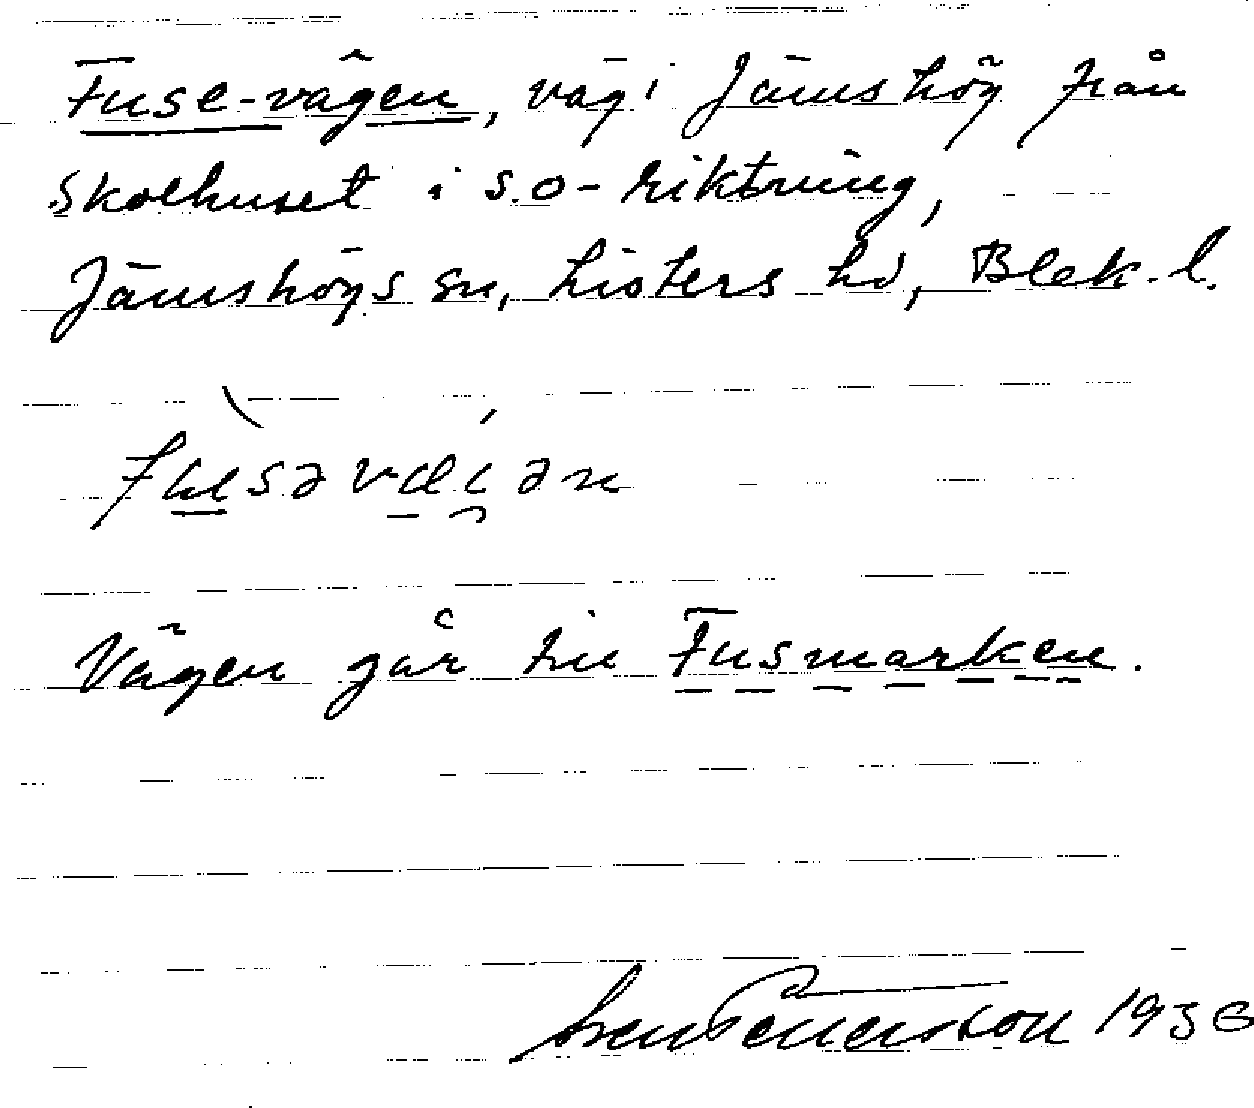 Fuse-vägen, väg i Jämshög från
skolhuset i s.o-riktning,
Jämshögs sn, Listers hd, Blek. l.
fusəvæi̯ən
Vägen går till Fusmarken.
1936